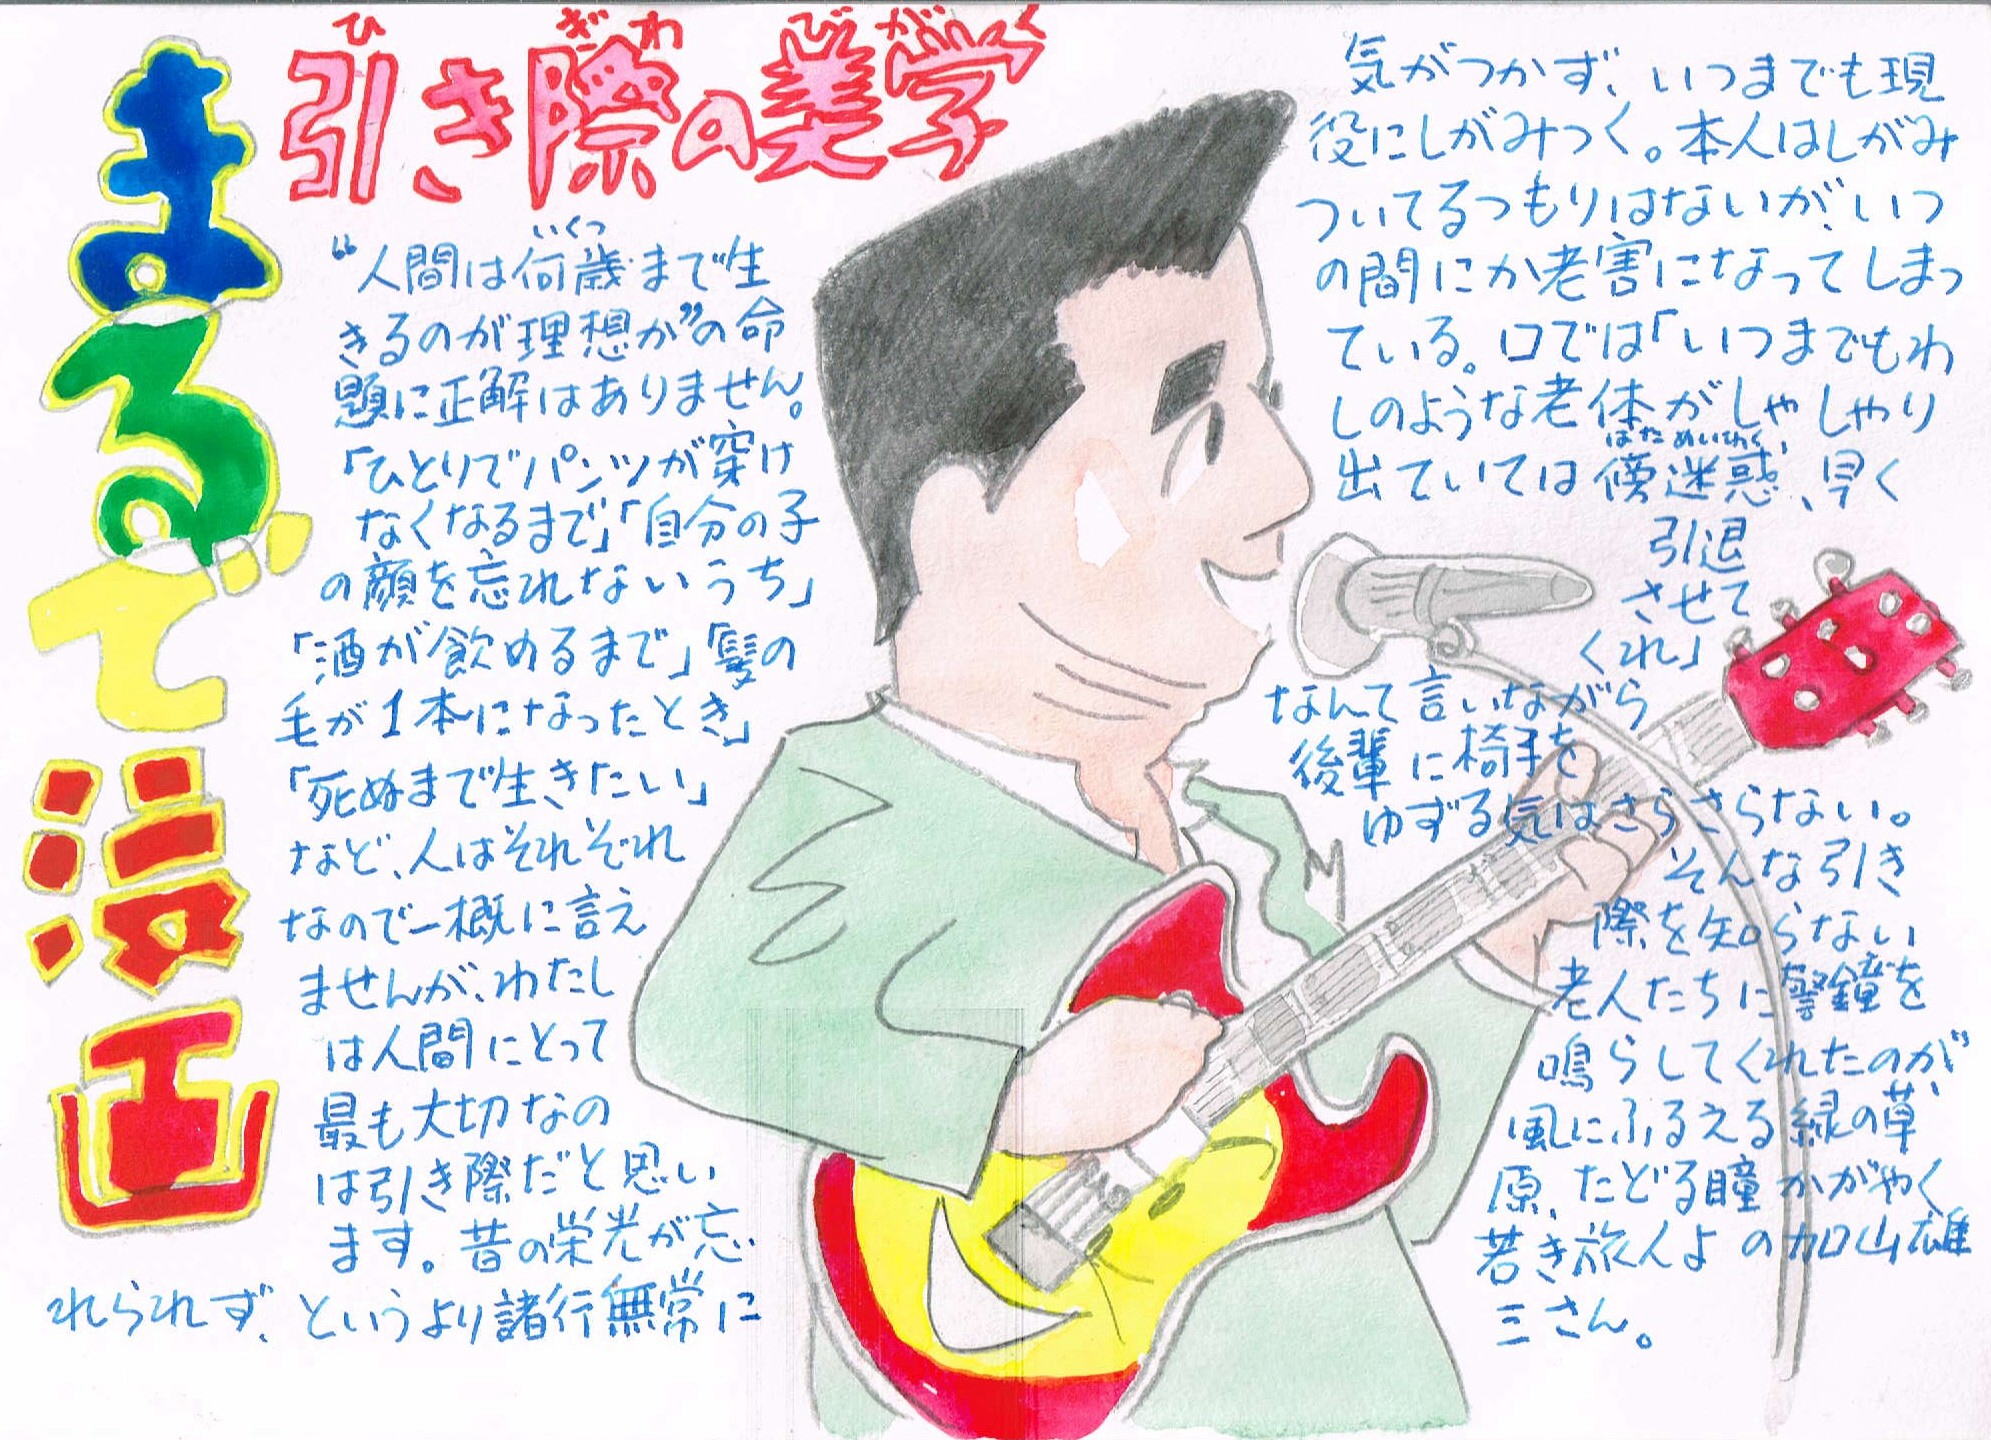 まるで漫画
引き際の美学
ひ ぎわ びがく
“人間は何歳まで生
いくつ
きるのが理想か”の命
題に正解はありません。
「ひとりでパンツが穿け
なくなるまで」「自分の子
の顔を忘れないうち」
「酒が飲めるまで」「髪の
毛が1本になったとき」
「死ぬまで生きたい」
など、人はそれぞれ
なので一概に言え
ませんが、わたし
は人間にとって
最も大切なの
は引き際だと思い
ます。昔の栄光が忘
れられず、というより諸行無常に
気がつかず、いつまでも現
役にしがみつく。本人はしがみ
ついてるつもりはないが、いつ
の間にか老害になってしまっ
ている。口では「いつまでもわ
しのような老体がしゃしゃり
出ていては傍迷惑、早く
はためいわく
引退
させて
くれ」
なんて言いながら
後輩に椅子を
ゆずる気はさらさらない。
そんな引き
際を知らない
老人たちに警鐘を
鳴らしてくれたのが、
風にふるえる緑の草
原、たどる瞳かがやく
若き旅人よの加山雄
三さん。
M